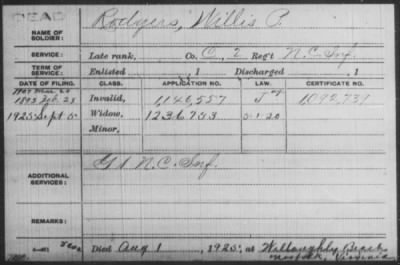 DEAD
NAME OF SOLDIER: Rodgers, Willis P.
SERVICE: Late rank, Co. C, 2 Reg't N.C. Inf.
TERM OF SERVICE: Enlisted , 1 Discharged , 1
DATE OF FILING. CLASS. APPLICATION NO. LAW. CERTIFICATE NO.
1893 28 Invalid, 1,146,557 J 1,092,739
1925 Sept 5 Widow, 1236743 5-1-20
Minor,
ADDITIONAL SERVICES: G 1 N.C. Inf.
REMARKS:
Died Aug 1, 1925, at Willoughby Beach
Norfolk, Virginia